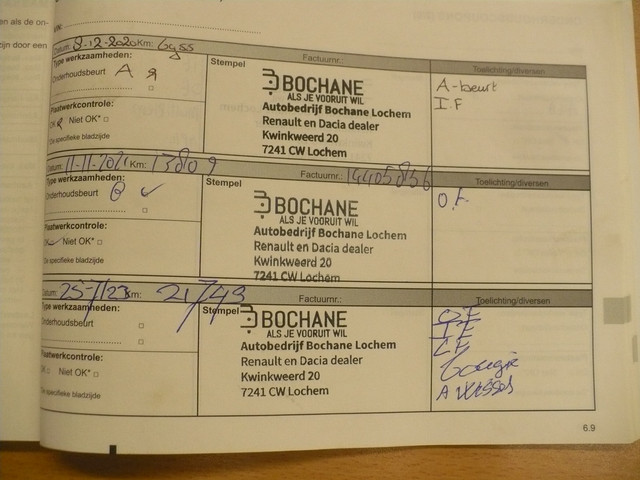 en als de on-
zijn door een
Datum: 8-12-2020 Km: 6955
Factuurnr.:
Type werkzaamheden:
Onderhoudsbeurt A
Stempel
Toelichting/diversen
BOCHANE
ALS JE VOORUIT WIL
Autobedrijf Bochane Lochem
Renault en Dacia dealer
Kwinkweerd 20
7241 CW Lochem
A-beurt
I.F
Plaatwerkcontrole:
Niet OK*
specifieke bladzijde
Datum: 11-11-2021 Km: 13809
Factuurnr.: 14405856
Type werkzaamheden:
Onderhoudsbeurt
Stempel
Toelichting/diversen
BOCHANE
ALS JE VOORUIT WIL
Autobedrijf Bochane Lochem
Renault en Dacia dealer
Kwinkweerd 20
7241 CW Lochem
O.F
Plaatwerkcontrole:
Niet OK*
specifieke bladzijde
Datum: 25-1/23 Km: 21749
Factuurnr.:
Type werkzaamheden:
Onderhoudsbeurt
Stempel
Toelichting/diversen
BOCHANE
ALS JE VOORUIT WIL
Autobedrijf Bochane Lochem
Renault en Dacia dealer
Kwinkweerd 20
7241 CW Lochem
OF
IF
CF
bougie
Plaatwerkcontrole:
Niet OK*
specifieke bladzijde
6.9